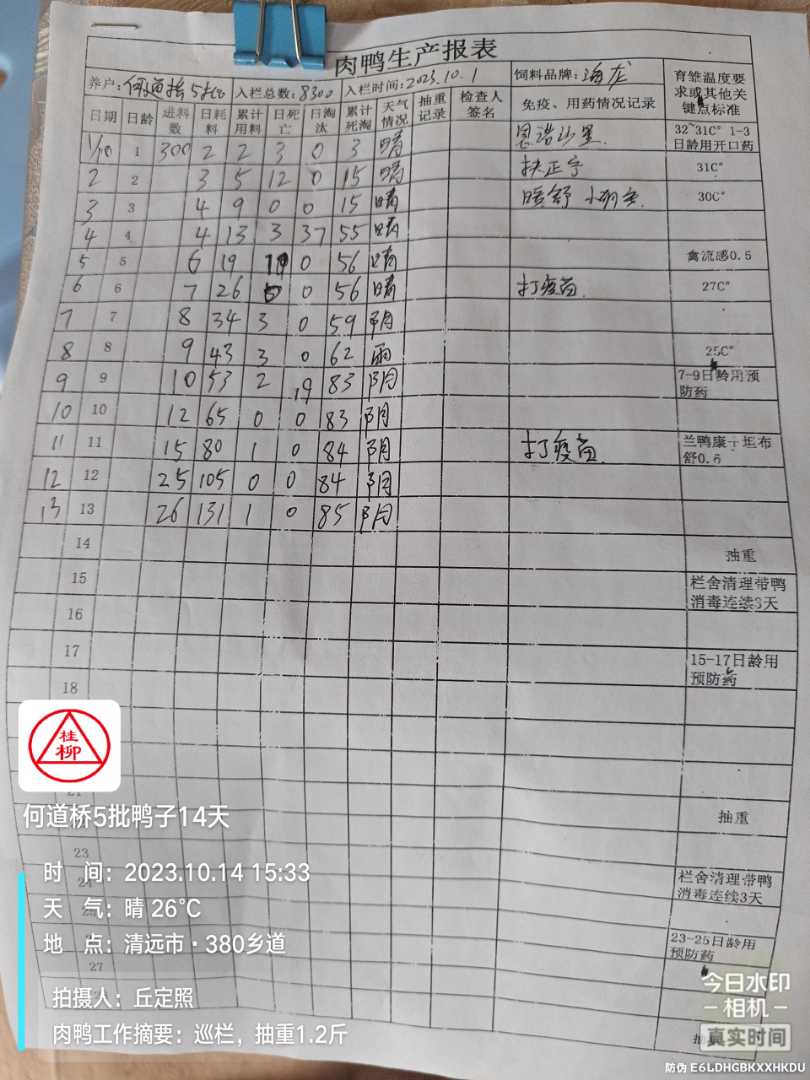 肉鸭生产报表
养户: 何道桥5批 入栏总数: 8300 入栏时间: 2023.10.1 饲料品牌: 海龙 育雏温度要求或其他关键点标准
日期 日龄 进料数 日耗料 累计用料 日死亡 日淘汰 累计死淘 天气情况 抽重记录 检查人签名 免疫、用药情况记录
1/10 1 300 2 2 3 0 3 晴 32~31C° 1-3日龄用开口药
2 2 3 5 12 0 15 晴 扶正宁 31C°
3 3 4 9 0 0 15 晴 30C°
4 4 4 13 3 37 55 晴
5 5 6 19 1 0 56 晴 禽流感0.5
6 6 7 26 0 0 56 晴 打疫苗 27C°
7 7 8 34 3 0 59 阴
8 8 9 43 3 0 62 雨 25C°
9 9 10 53 2 19 83 阴 7-9日龄用预防药
10 10 12 65 0 0 83 阴
11 11 15 80 1 0 84 阴 打疫苗 兰鸭康+坦布舒0.6
12 12 25 105 0 0 84 阴
13 13 26 131 1 0 85 阴
14 抽重
15 栏舍清理带鸭消毒连续3天
16
17 15-17日龄用预防药
18
桂柳
21 抽重
何道桥5批鸭子14天
23
时 间: 2023.10.14 15:33
24 栏舍清理带鸭消毒连续3天
天 气: 晴 26℃
地 点: 清远市·380乡道
23-25日龄用预防药
27
拍摄人: 丘定照
肉鸭工作摘要: 巡栏，抽重1.2斤
今日水印
相机
真实时间
防伪 E6LDHGBKXXHKDU